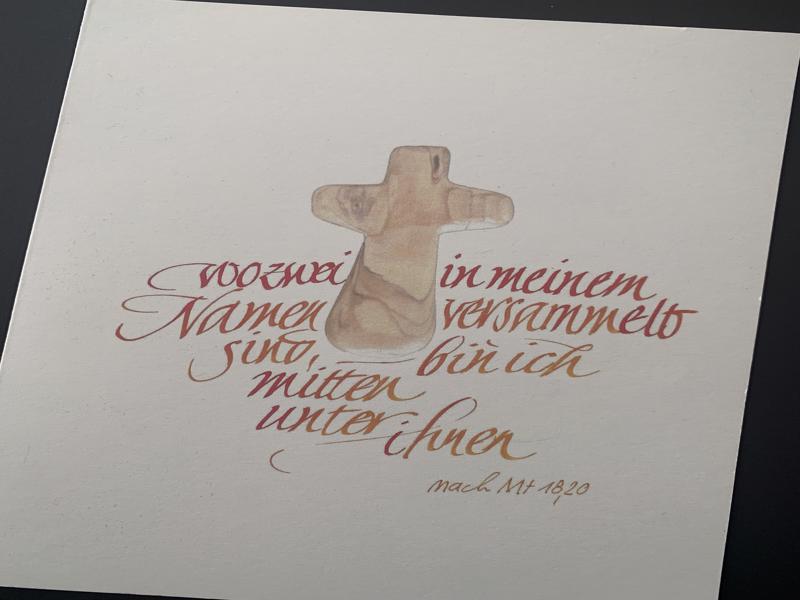 wo zwei in meinem
Namen versammelt
sind, bin ich
mitten
unter ihnen
nach Mt 18,20